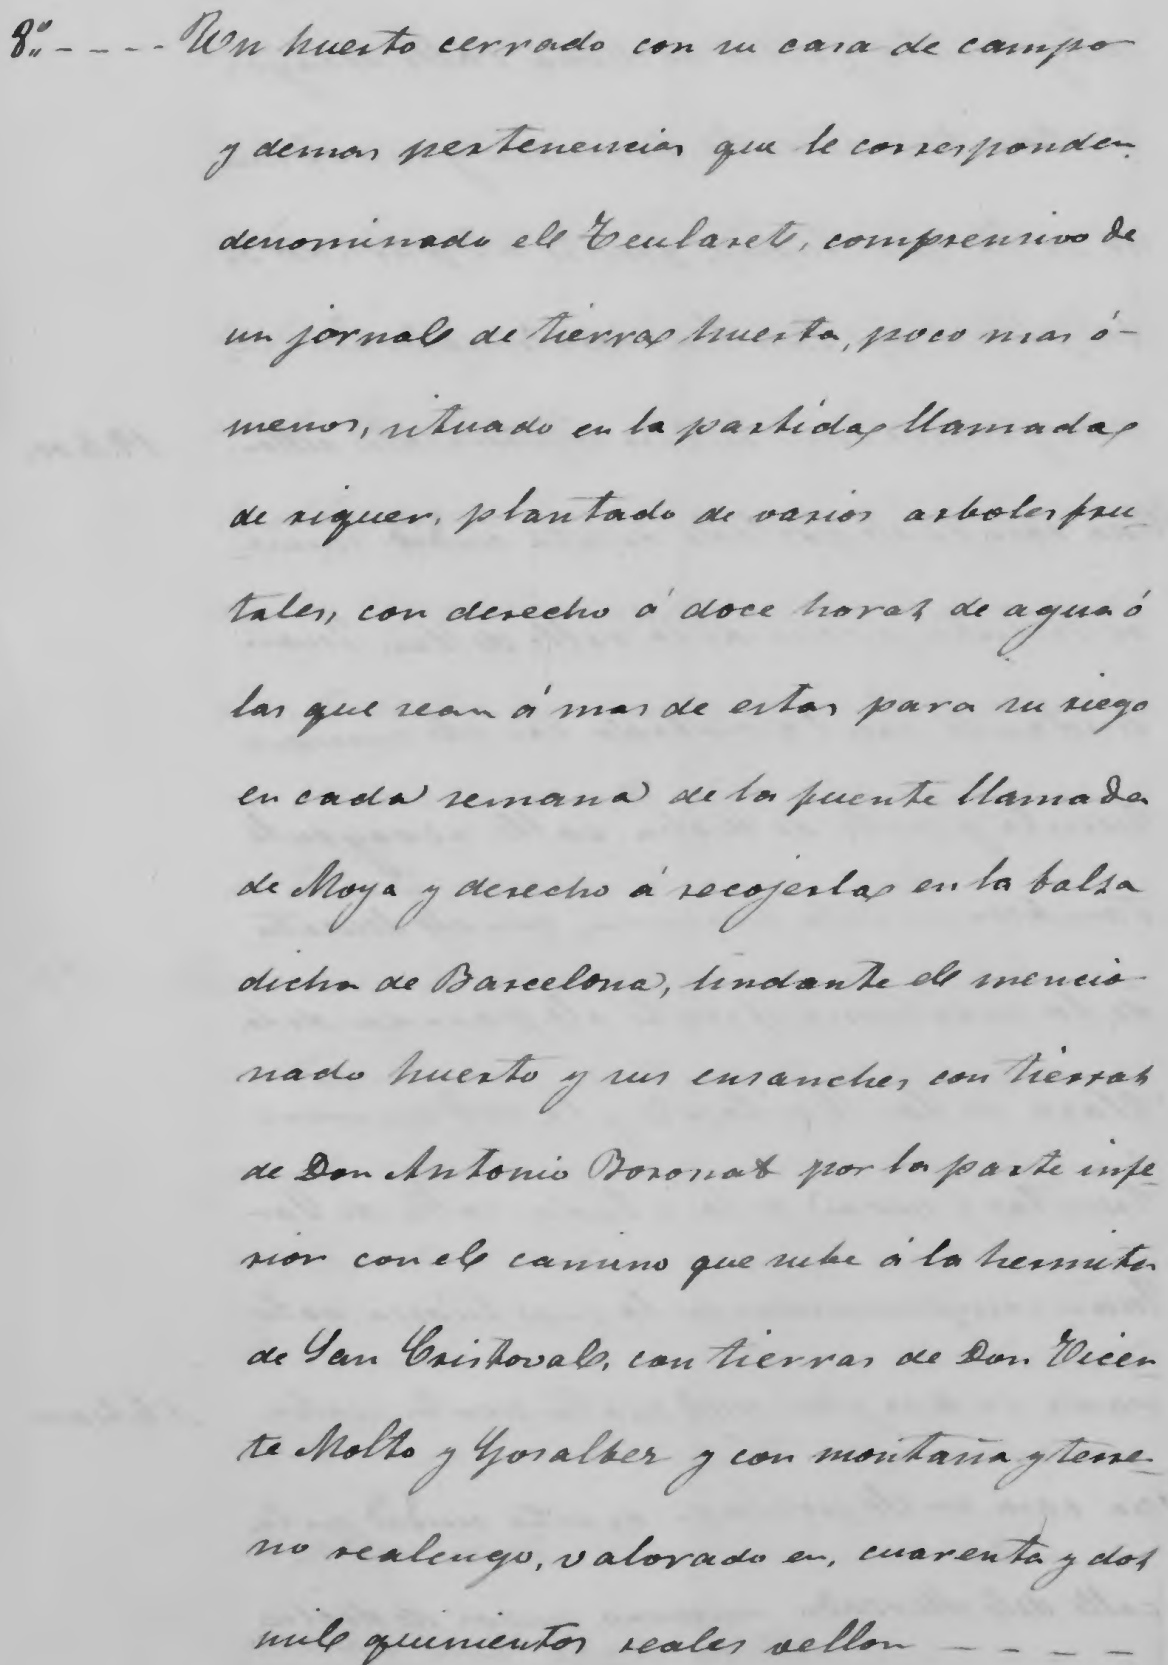 8.º ---- Un huerto cerrado con su casa de campo
y demas pertenencias que le corresponden
denominado el Teularet, comprensivo de
un jornal de tierra huerta, poco mas ó
menos, situado en la partida llamada
de riquer, plantado de varios arboles fru
tales, con derecho á doce horas de agua ó
las que sean á mas de estas para su riego
en cada semana de la fuente llamada
de Moya y derecho á recojerla en la balsa
dicha de Barcelona, lindante el mencio
nado huerto y sus ensanches con tierras
de Don Antonio Boronat por la parte infe
rior con el camino que sube á la hermita
de San Cristoval, con tierras de Don Vicen
te Molto y Gosalbez y con montaña y terre
no realengo, valorado en, cuarenta y dos
mil quinientos reales vellon ----